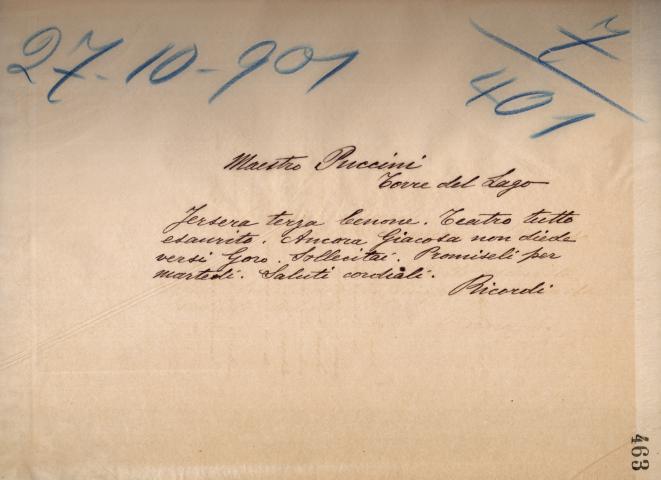 27-10-901
7/401
Maestro Puccini
Torre del Lago
Jersera terza Zenone. Teatro tutto
esaurito. Ancora Giacosa non diede
versi Goro. Sollecitai. Promiseli per
martedì. Saluti cordiali.
Ricordi
463